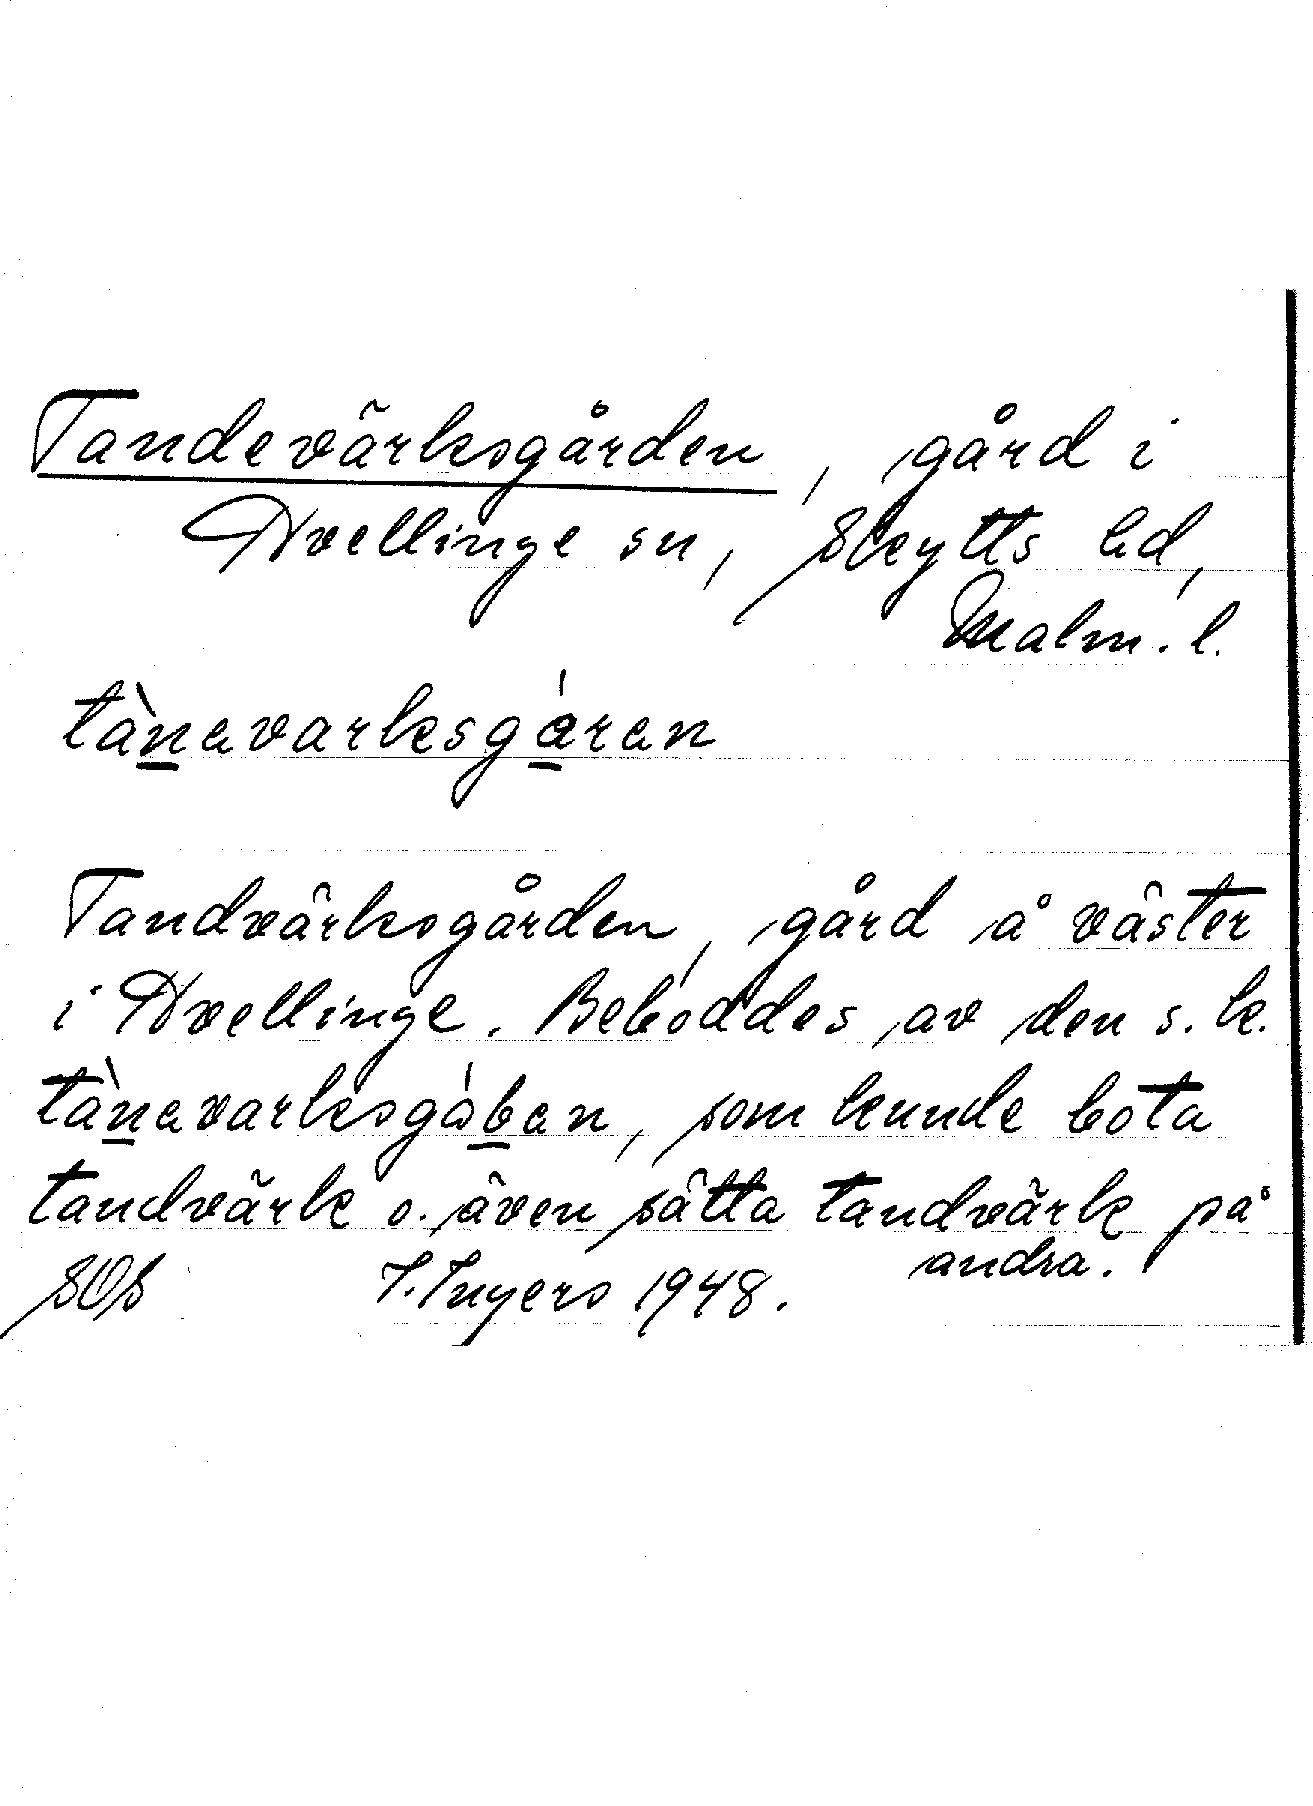 Tandevärksgården, gård i
Vellinge sn, Skytts hd,
Malm. l.
tànavarksgáran
Tandvärksgården, gård å väster
i Vellinge. Beboddes av den s. k.
tànavarksgában, som kunde bota
tandvärk o. även sätta tandvärk på
andra.
SOS I. Ingers 1948.